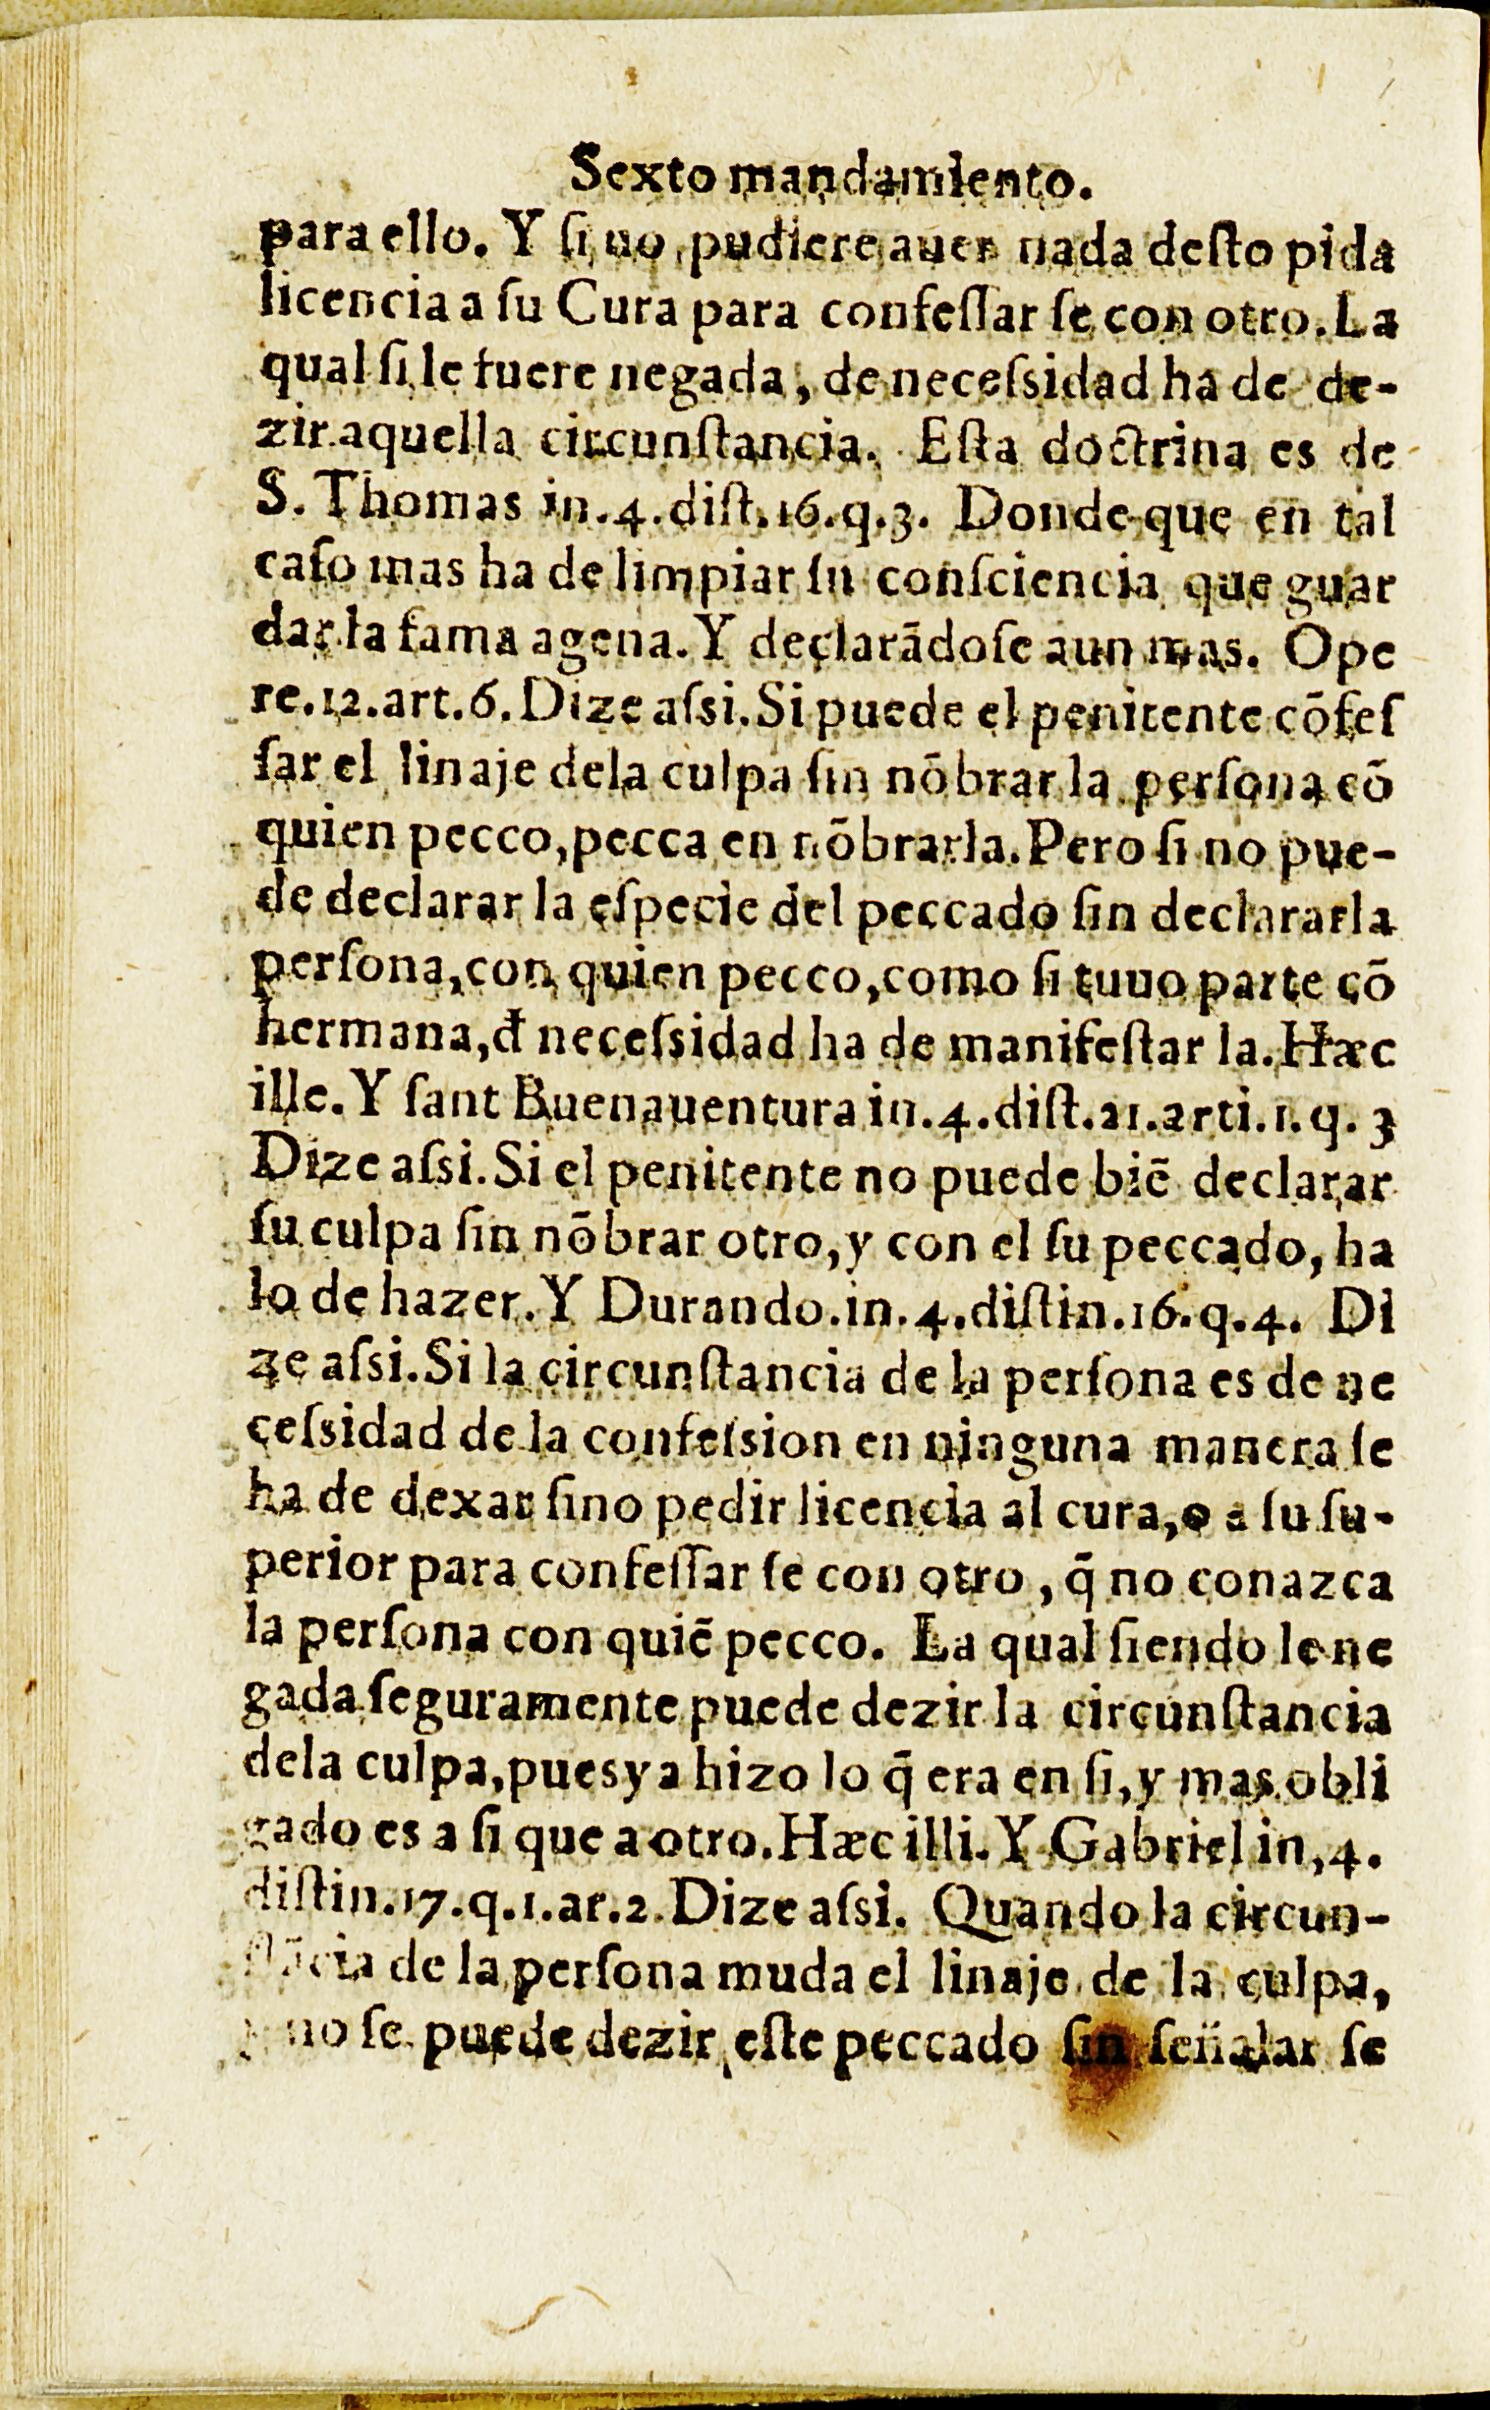 Sexto mandamiento.
para ello. Y ſi uo pudiere auer nada deſto pida
licencia a ſu Cura para confeſſar ſe con otro. La
qual ſi le fuere negada, de neceſsidad ha de de-
zir aquella circunſtancia. Eſta doctrina es de
S. Thomas in.4.diſt.16.q.3. Donde que en tal
caſo mas ha de limpiar ſu conſciencia que guar
dar la fama agena. Y declarãdoſe aun mas. Ope
re.12.art.6. Dize aſsi. Si puede el penitente cõfeſ
ſar el linaje dela culpa ſin nõbrar la perſona cõ
quien pecco, pecca en nõbrarla. Pero ſi no pue-
de declarar la eſpecie del peccado ſin declararla
perſona, con quien pecco, como ſi tuuo parte cõ
hermana, đ neceſsidad ha de manifeſtar la. Hæc
ille. Y ſant Buenauentura in.4.diſt.21.arti.1.q.3
Dize aſsi. Si el penitente no puede biẽ declarar
ſu culpa ſin nõbrar otro, y con el ſu peccado, ha
lo de hazer. Y Durando.in.4.diſtin.16.q.4. Di
ze aſsi. Si la circunſtancia de la perſona es de ne
ceſsidad de la confeſsion en ninguna manera ſe
ha de dexar ſino pedir licencia al cura, o a ſu ſu-
perior para confeſſar ſe con otro, q̃ no conazca
la perſona con quiẽ pecco. La qual ſiendo le ne
gada ſeguramente puede dezir la circunſtancia
dela culpa, pues ya hizo lo q̃ era en ſi, y mas obli
gado es a ſi que a otro. Hæc illi. Y Gabriel in,4.
diſtin.17.q.1.ar.2. Dize aſsi. Quando la circun-
ſtãcia de la perſona muda el linaje de la culpa,
y no ſe puede dezir eſte peccado ſin ſeñalar ſe